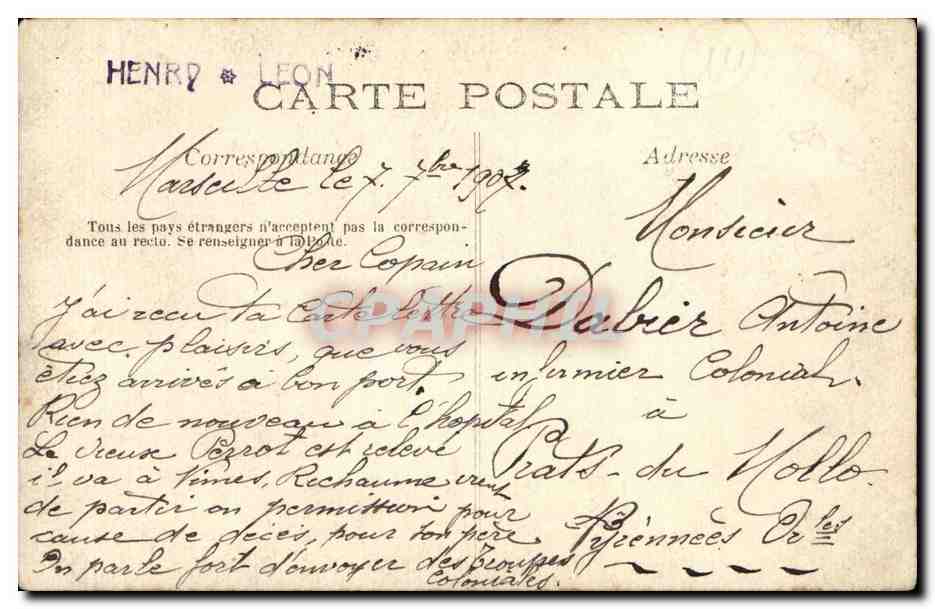 HENRY * LEON
CARTE POSTALE
Correspondance
Marseille le 7. 7bre 1907.
Tous les pays étrangers n'acceptent pas la correspon-
dance au recto. Se renseigner à la Poste.
Cher Copain
J'ai recu ta Carte lettre
avec plaisirs, que vous
étiez arrivés a bon port.
Rien de nouveau à l'hopital
Le vieux Perrot est relevé
il va à Nimes, Richaume vient
de partir en permission pour
cause de décès, pour son père.
On parle fort d'envoyer des troupes
Coloniales.
Adresse
Monsieur
Dabier Antoine
infirmier Colonial.
à
Prats-du Mollo
Pyrénnèes Orles
CPAPHIL